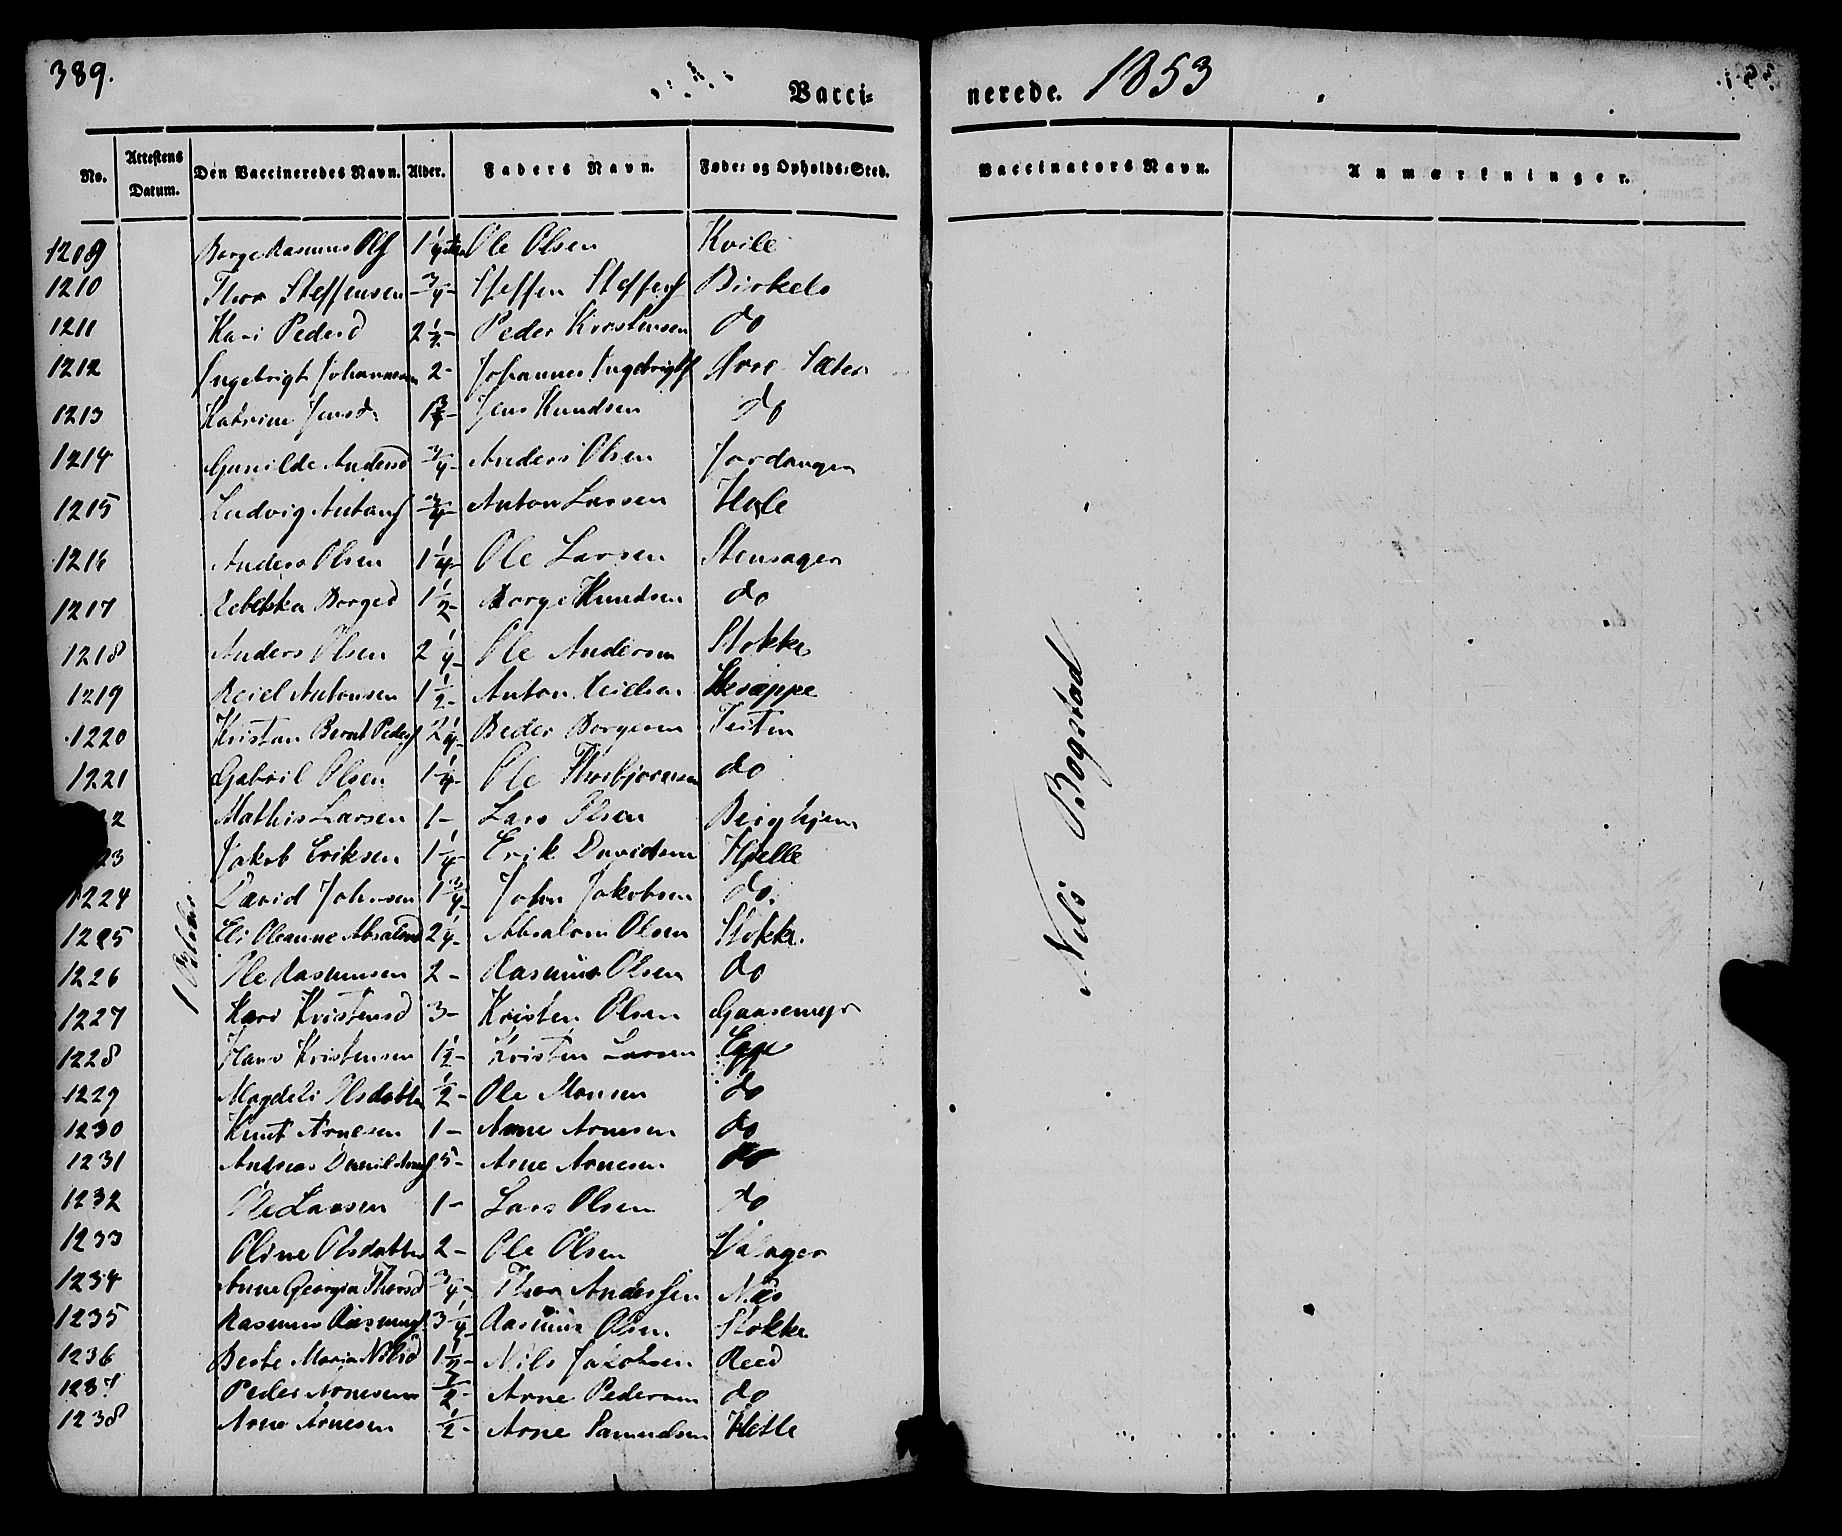 389.
Vacci- nerede. 1853
No. Attestens Datum. Den Vaccineredes Navn. Alder. Faders Navn. Føde- og Opholds-Sted. Vaccinators Navn. Anmærkninger.
1209 Børge Rasmus Ols 1 1/4 Ole Olsen Kvile
1210 Thor Steffensen 3/4 - Steffen Steffens Birkelo
1211 Kari Pedersd 2 1/2 - Peder Kristensen do
1212 Ingebrigt Johannesen 2 - Johannes Ingebrigts Sæter
1213 Katrine Jensd. 1 3/4 - Jens Knudsen do
1214 Gunilde Andersd 3/4 - Anders Olsen Jordanger
1215 Ludvig Antons 3/4 - Anton Larsen Hole
1216 Anders Olsen 1 1/4 - Ole Larsen Stensager
1217 Rebekka Børged 1 1/2 - Børge Knudsen do
1218 Anders Olsen 2 1/4 - Ole Andersen Stokke
1219 Reiel Antonsen 1 1/2 - Anton
1220 Kristan Bernt Peders 2 1/4 - Peder Børgesen Teiten
1221 Gabril Olsen 1 1/4 - Ole Thorbjørnsen do
22 Mathis Larsen 1 - Lars Olsen Berghjem
23 Jakob Eriksen 1 1/4 - Erik Davidsen Hjelle
1224 David Johnsen 1 3/4 - John Jakobsen do.
1225 Eli Oleanne Absalonsd 2 1/4 - Absalom Olsen Stokke.
1226 Ole Rasmusen 2 - Rasmus Olsen do
1227 Kari Kristensd 3 - Kristen Olsen Gaasemyr
1228 Hans Kristensen 1 1/2 - Kristen Larsen Egge
1229 Magdeli Olsdatter 1/2 - Ole Monsen do
1230 Knut Arnesen 1 - Arne Arnesen do
1231 Andreas Daniel Arnes 5 - Arne Arnesen do
1232 Ole Larsen 1 - Lars Olsen do
1233 Oline Olsdatter 2 - Ole Olsen
1234 Anne Georgia Thorsd 3/4 - Thor Andersen Næs
1235 Rasmus Rasmus 3 1/4 - Rasmus Olsen Stokke
1236 Berte Maria Nilsd 1 1/2 - Nils Jakobsen Reed
1237 Peder Arnesen 1/2 - Arne Pedersen do
1238 Arne Arnesen 1/2 - Arne Samuelsen Hetle
1 Oktober
Nils Bogstad